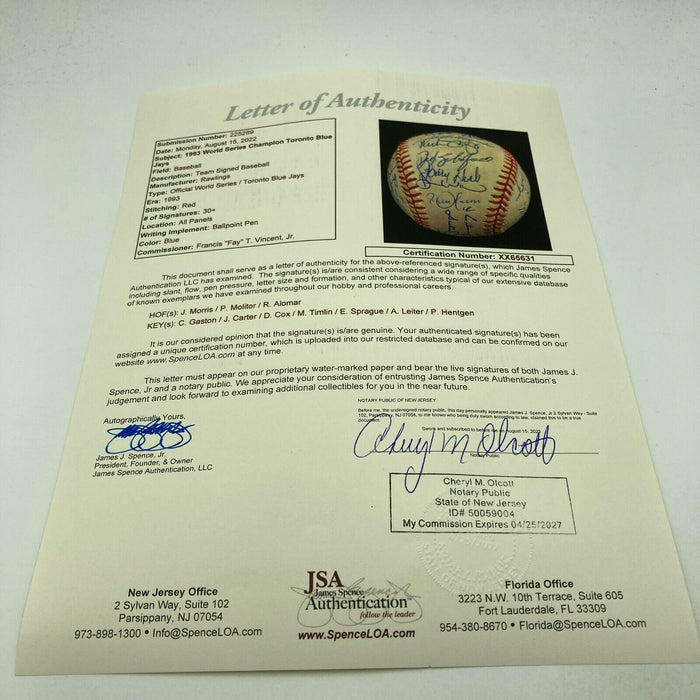 Letter of Authenticity
Submission Number: 225289
Date: Monday, August 15, 2022
Subject: 1993 World Series Champion Toronto Blue
Jays
Field: Baseball
Description: Team Signed Baseball
Manufacturer: Rawlings
Type: Official World Series / Toronto Blue Jays
Era: 1993
Stitching: Red
# of Signatures: 30+
Location: All Panels
Writing Implement: Ballpoint Pen
Color: Blue
Commissioner: Francis "Fay" T. Vincent, Jr.
Certification Number: XX65631
This document shall serve as a letter of authenticity for the above-referenced signature(s), which James Spence
Authentication LLC has examined. The signature(s) is/are consistent considering a wide range of specific qualities
including slant, flow, pen pressure, letter size and formation, and other characteristics typical of our extensive database
of known exemplars we have examined throughout our hobby and professional careers.
HOF(s): J. Morris / P. Molitor / R. Alomar
KEY(s): C. Gaston / J. Carter / D. Cox / M. Timlin / E. Sprague / A. Leiter / P. Hentgen
It is our considered opinion that the signature(s) is/are genuine. Your authenticated signature(s) has been
assigned a unique certification number, which is uploaded into our restricted database and can be confirmed on our
website www.SpenceLOA.com at any time.
This letter must appear on our proprietary water-marked paper and bear the live signatures of both James J.
Spence, Jr and a notary public. We appreciate your consideration of entrusting James Spence Authentication's
judgement and look forward to examining additional collectibles for you in the near future.
NOTARY PUBLIC OF NEW JERSEY
Before me, the undersigned notary public, this day personally appeared James J. Spence, Jr 2 Sylvan Way - Suite
102, Parsippany, NJ 07054, to me known who being duly sworn according to law, claimed this to be a true
document.
Sworn and subscribed to before me on August 15, 2022
Autographically Yours,
Cheryl M. Olcott
Notary Public
James J. Spence, Jr.
President, Founder, & Owner
James Spence Authentication, LLC
Cheryl M. Olcott
Notary Public
State of New Jersey
ID# 50059004
My Commission Expires 04/25/2027
New Jersey Office
2 Sylvan Way, Suite 102
Parsippany, NJ 07054
973-898-1300 • Info@SpenceLOA.com
JSA
James Spence
Authentication
follow the leader
www.SpenceLOA.com
Florida Office
3223 N.W. 10th Terrace, Suite 605
Fort Lauderdale, FL 33309
954-380-8670 • Florida@SpenceLOA.com